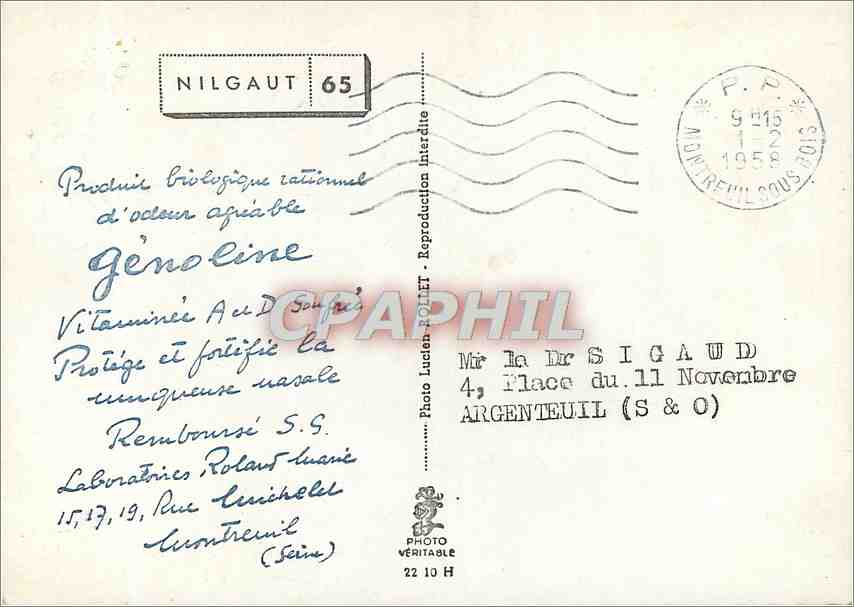 NILGAUT 65
Produit biologique rationnel
d'odeur agréable
Génoline
Vitaminée A et D Soufrée
Protège et fortifie la
muqueuse nasale
Remboursé S.S.
Laboratoires Roland Marie
15, 17, 19, Rue Michelet
Montreuil
(Seine)
Photo Lucien ROLLET - Reproduction interdite
PHOTO
VÉRITABLE
22 10 H
P. P.
9H15
1 - 2
1958
MONTREUIL SOUS BOIS
Mr le Dr SIGAUD
4, Place du.11 Novembre
ARGENTEUIL (S & O)
CPAPHIL